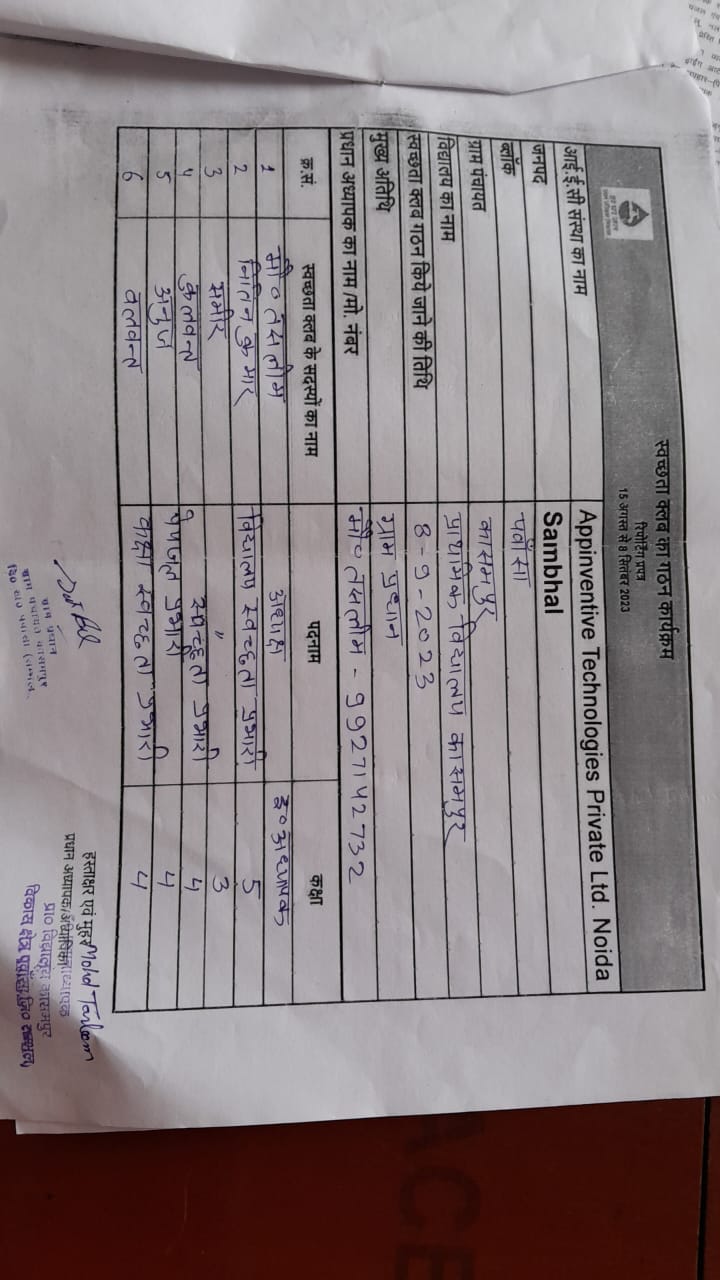 स्वच्छता क्लब का गठन कार्यक्रम
रिपोर्टिंग प्रपत्र
15 अगस्त से 8 सितंबर 2023
आई.ई.सी संस्था का नाम Appinventive Technologies Private Ltd. Noida
जनपद Sambhal
ब्लॉक पवाँसा
ग्राम पंचायत कासमपुर
विद्यालय का नाम प्राथमिक विद्यालय कासमपुर
स्वच्छता क्लब गठन किये जाने की तिथि 8-9-2023
मुख्य अतिथि ग्राम प्रधान
प्रधान अध्यापक का नाम /मो. नंबर मौ० तसलीम - 9927142732
क्र.सं. स्वच्छता क्लब के सदस्यों का नाम पदनाम कक्षा
1 मौ० तसलीम अध्यक्ष इ०अध्यापक
2 नितिन कुमार विद्यालय स्वच्छता प्रभारी 5
3 समीर " 3
4 कुलवन्त स्वच्छता प्रभारी 4
5 अनुज पेयजल प्रभारी 4
6 बलवन्त कक्षा स्वच्छता प्रभारी 4
ग्राम प्रधान
ग्राम पंचायत कासमपुर
हस्ताक्षर एवं मुहर Mohd Tasleem
प्रधान अध्यापक/
प्रा० विद्यालय कासमपुर
विकास क्षेत्र पवांसा